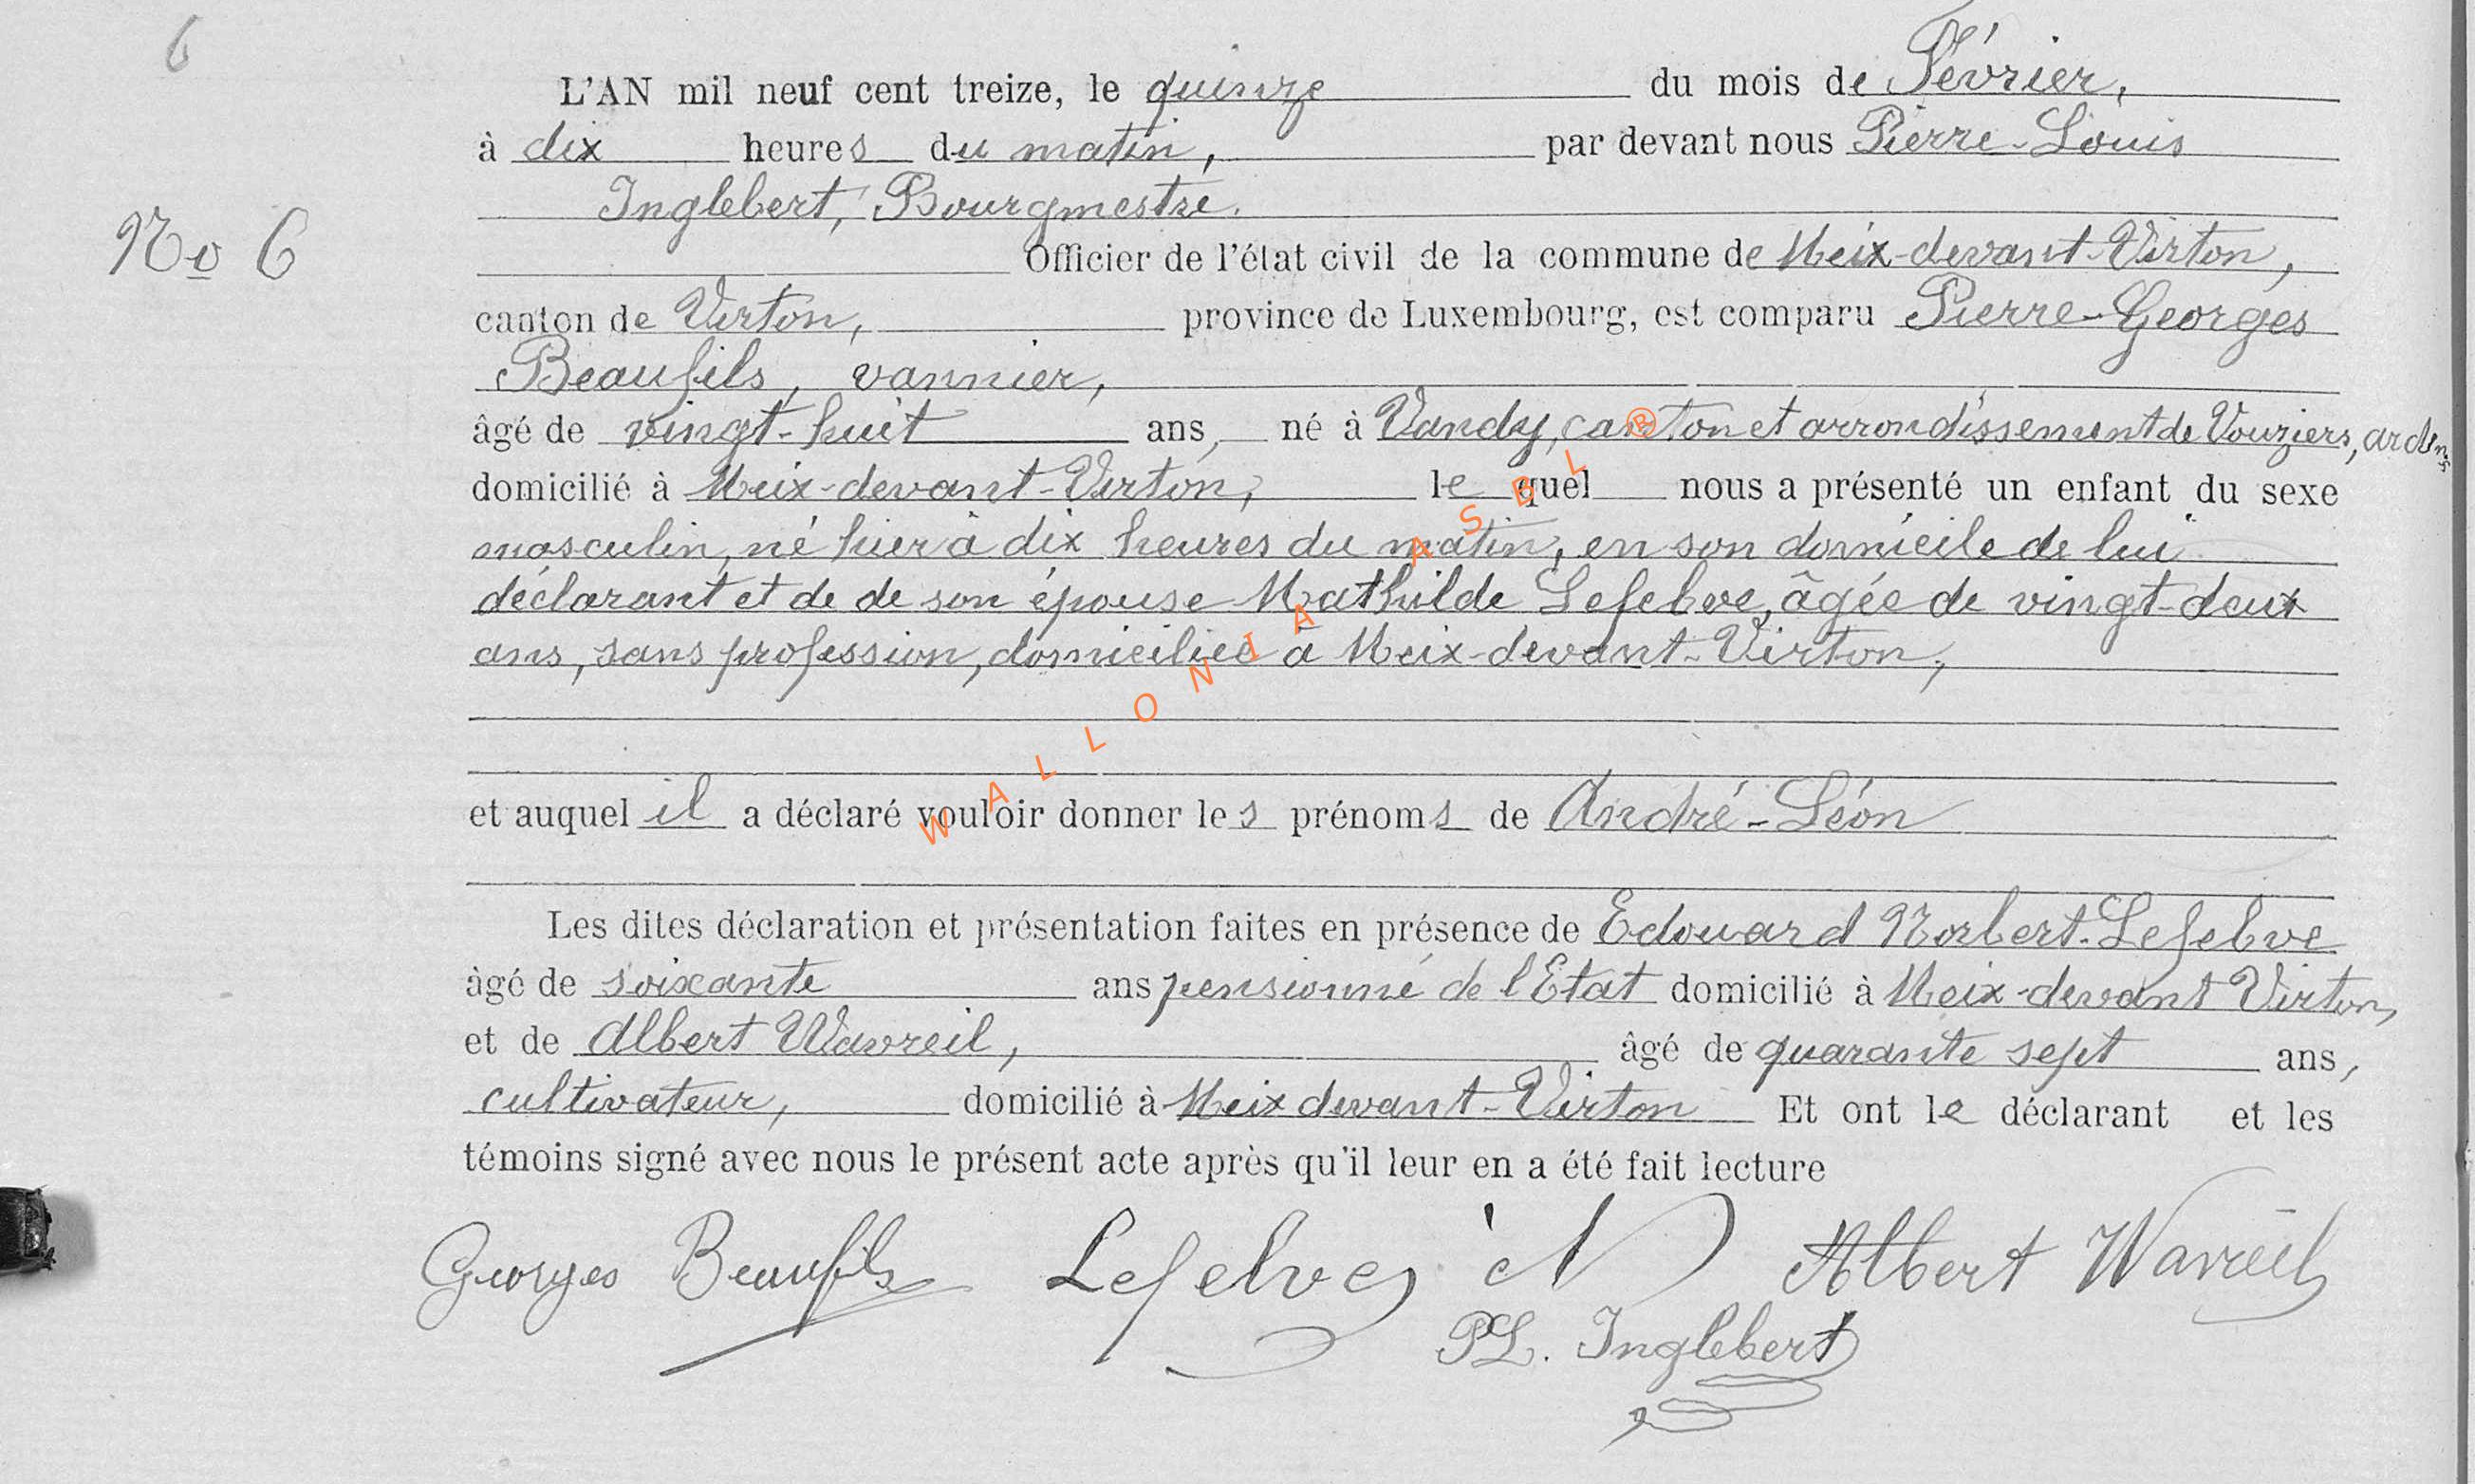 6
L'AN mil neuf cent treize, le quinze du mois de Février,
à dix heures du matin, par devant nous Pierre-Louis
Inglebert, Bourgmestre.
No 6
Officier de l'état civil de la commune de Meix-devant-Virton,
canton de Virton, province de Luxembourg, est comparu Pierre-Georges
Beaufils, vannier,
âgé de vingt-huit ans, né à Vandy, canton et arrondissement de Vouziers, arden
domicilié à Meix-devant-Virton, lequel nous a présenté un enfant du sexe
masculin, né hier à dix heures du matin, en son domicile de lui
déclarant et de de son épouse Mathilde Lefebve, âgée de vingt-deux
ans, sans profession, domiciliée à Meix-devant-Virton,
et auquel il a déclaré vouloir donner les prénoms de André-Léon
Les dites déclaration et présentation faites en présence de Edouard Norbert-Lefebve
âgé de soixante ans pensionné de l'Etat domicilié à Meix-devant Virton,
et de Albert Wavreil, âgé de quarante sept ans,
cultivateur, domicilié à Meix devant-Virton Et ont le déclarant et les
témoins signé avec nous le présent acte après qu'il leur en a été fait lecture
Georges Beaufils Lefebve N Albert Wavreil
PL. Inglebert
WALLONIA ASBL ®